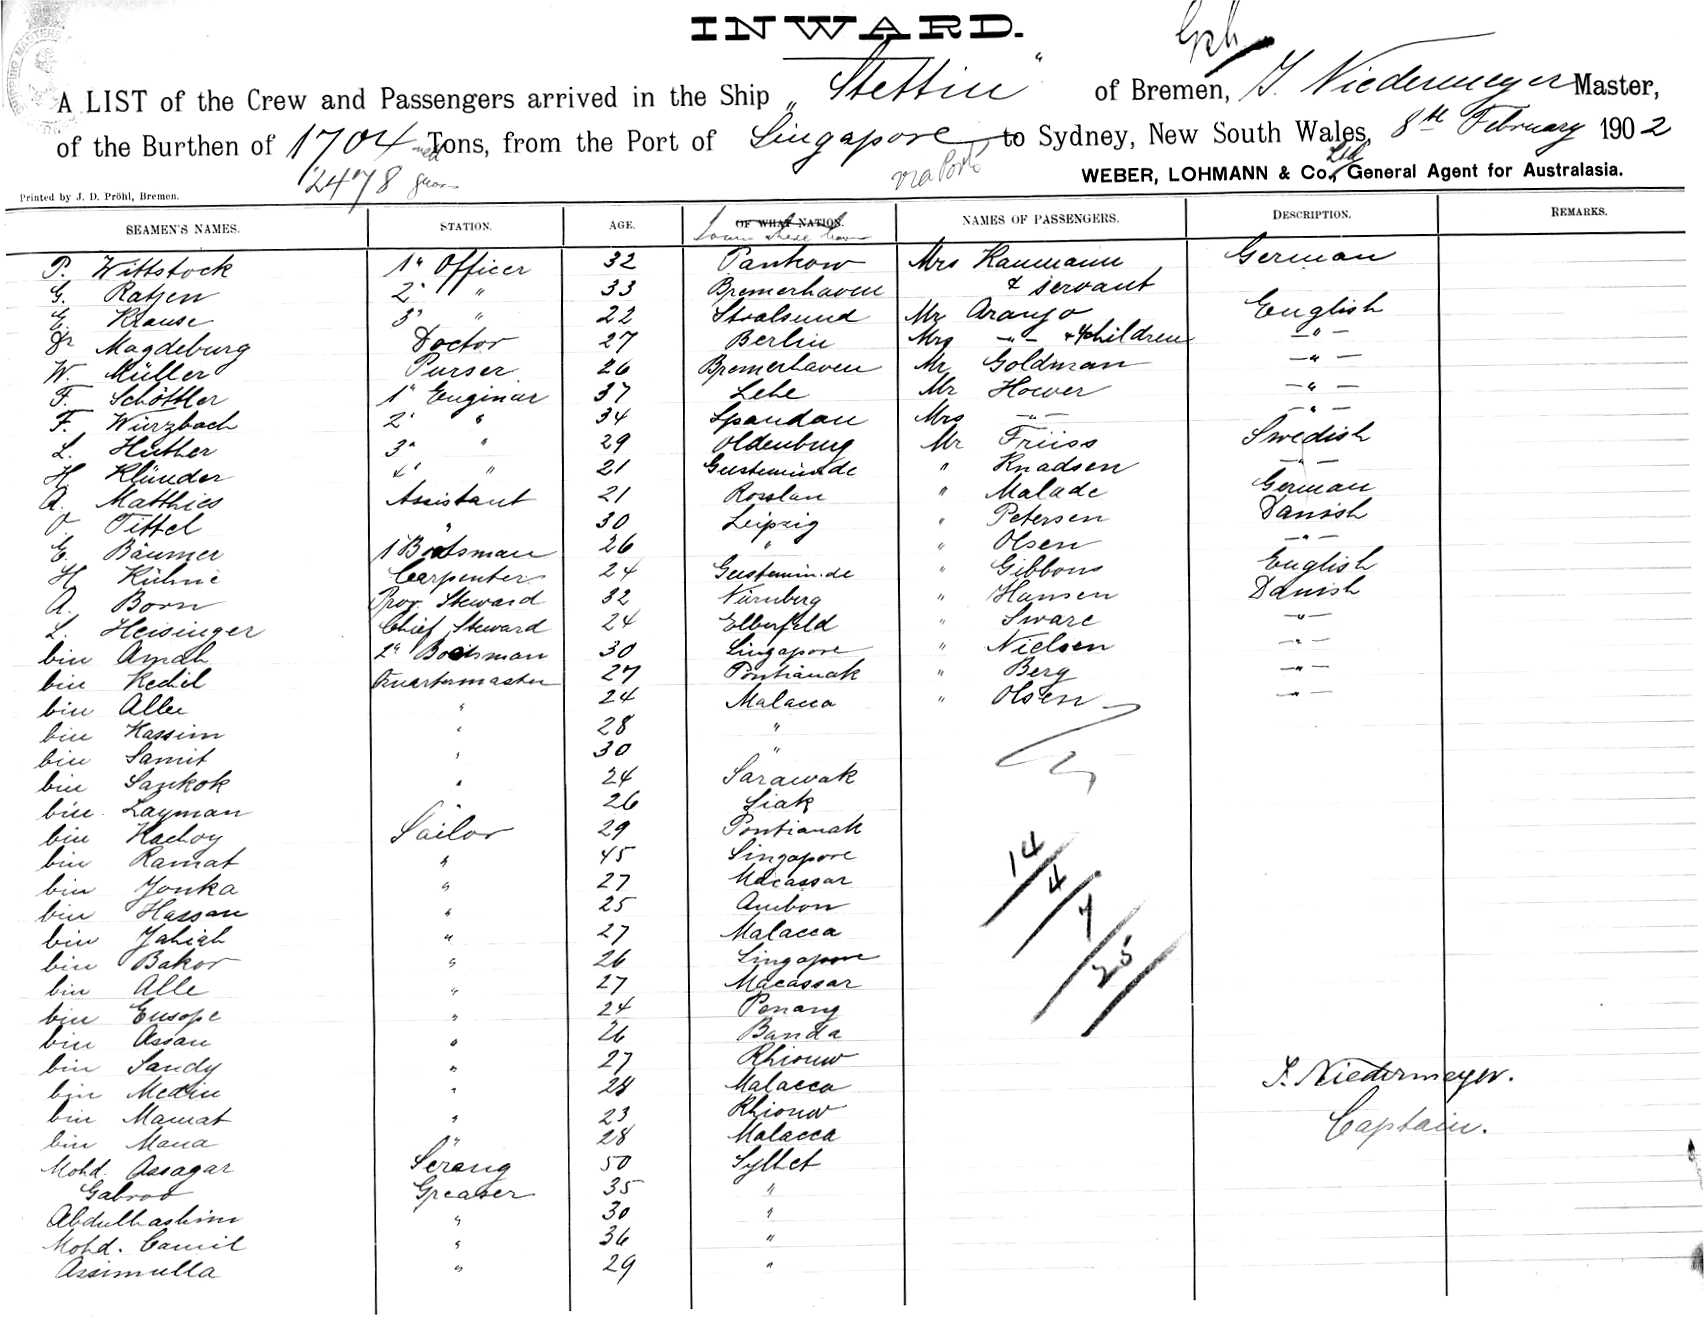 INWARD.
A LIST of the Crew and Passengers arrived in the Ship „Stettin“ of Bremen, J. Niedermeyer Master,
of the Burthen of 1704 nett Tons, from the Port of Singapore to Sydney, New South Wales, 8th February 1902
2478 gross via Ports WEBER, LOHMANN & Co. Ltd, General Agent for Australasia.
Printed by J. D. Pröhl, Bremen.
SEAMEN'S NAMES. STATION. AGE. OF WHAT NATION. NAMES OF PASSENGERS. DESCRIPTION. REMARKS.
Town where born
P. Wittstock 1" Officer 32 Pankow Mrs Kaumann German
G. Ratjen 2" " 33 Bremerhaven & servant
E. Krause 3" " 22 Stralsund Mr Araujo English
Dr Magdeburg Doctor 27 Berlin Mrs -"- & 4 children -"-
W. Müller Purser 26 Bremerhaven Mr Goldman -"-
F. Schöttler 1" Enginier 37 Lehe Mr Hower -"-
F. Würzbach 2" " 34 Spandau Mrs -"- -"-
L. Huther 3" " 29 Oldenburg Mr Friiss Swedish
H Klünder 4" " 21 Geestemünde " Knadsen -"-
A. Matthies Assistant 21 Rosslau " Malade German
O Tittel " 30 Leipzig " Petersen Danish
E. Bäumer 1 Bootsman 26 " " Olsen -"-
H Kühne Carpenter 24 Geestemünde " Gibbons English
A. Born Prov. Steward 32 Nürnberg " Hansen Danish
L. Heisinger Chief Steward 24 Elberfeld " Sware -"-
bin Amah 2" Bootsman 30 Singapore " Nielsen -"-
bin Kechil Quartermaster 27 Pontianak " Berg -"-
bin Allee " 24 Malacca " Olsen -"-
bin Kassim " 28 "
bin Samit " 30 "
bin Sankok " 24 Sarawak
bin Layman " 26 Siak
bin Kachoy Sailor 29 Pontianak
bin Ramat " 45 Singapore
bin Yonka " 27 Macassar
bin Hassan " 25 Ambon
bin Jahiah " 27 Malacca
bin Bakor " 26 Singapore
bin Alle " 27 Macassar
bin Eusope " 24 Penang
bin Assau " 26 Banda
bin Sandy " 27 Rhiouw
bin Medin " 28 Malacca
bin Mamat " 23 Rhiouw
bin Mana " 28 Malacca
Mohd. Assagar Serang 50 Sylhet
Gabroo Greaser 35 "
Abdulhashim " 30 "
Mohd. Camil " 36 "
Assimulla " 29 "
14
4
7
25
J. Niedermeyer.
Captain.